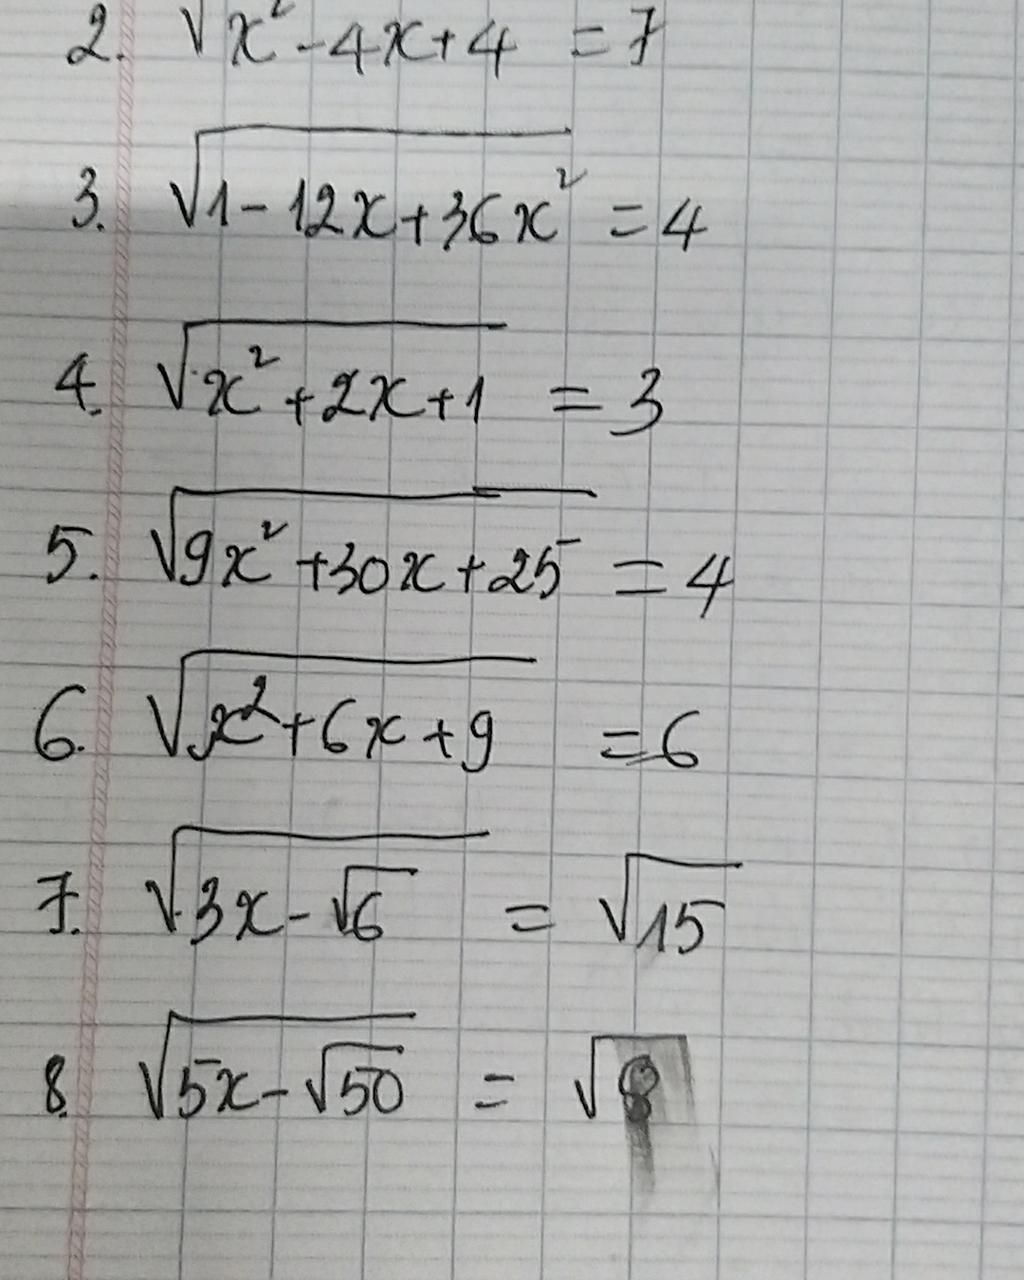 2. √x² - 4x + 4 = 7
3. √1 - 12x + 36x² = 4
4. √x² + 2x + 1 = 3
5. √9x² + 30x + 25 = 4
6. √x² + 6x + 9 = 6
7. √3x - √6 = √15
8. √5x - √50 = √8